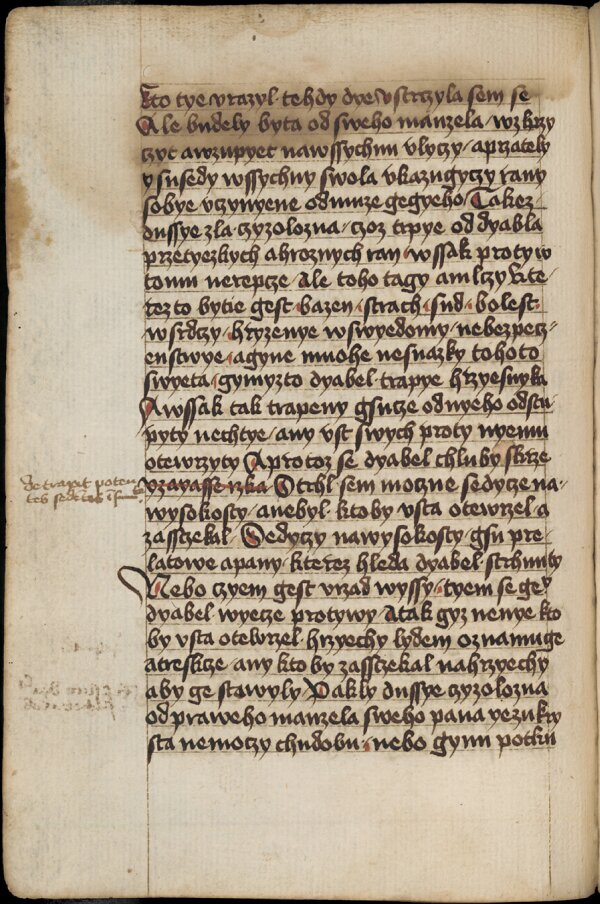 kto tye vrazyl · tehdy dye vstrczyla sem se
Ale budely byta od sweho manzela / wzkrzy
czyt a wzupyet nawssychnu vlyczy / a przately
y susedy wssychny swola vkazugyczy rany
sobye vczynyene od muze gegyeho / Takez
dussye zla czyzolozna / czoz trpye od dyabla
przetyezkych a hroznych ran / wssak protyw
tomu nerepcze / Ale toho tagy a mlczy
rezto bytie gest · bazen · strach · sud · bolest
w srdczy / hryzenye w swyedomy / nebezpecz=
enstwye / a gyne mnohe nesnazky tohoto
swyeta / gymyzto dyabel · trapye hrzyesnyka
A wssak tak trapeny gsucze od nyeho odstu
pyty nechtye / any vst swych proty nyemu
otewrzyty / A protoz se dyabel chluby skrze
yzayasse rzka / Strhl sem mocne sedycze na=
wysokosty / a nebyl · kto by vsta otewrzel a
zassczekal / Sedyczy na wysokosty / gsu pre=
latowe a pany / kterez hleda dyabel strhnuty
Nebo czyem gest vrzad wyssy / tyem se gey
dyabel wyecze protywy / A tak gyz nenye kto
by vsta otewrzel · hrzyechy lydem oznamuge
a treskcze / any kto by zassczekal na hrzyechy
aby ge stawyly / Pakly dussye czyzolozna
od praweho manzela sweho pana yezukry
sta nemoczy chudobu / nebo gynu potku